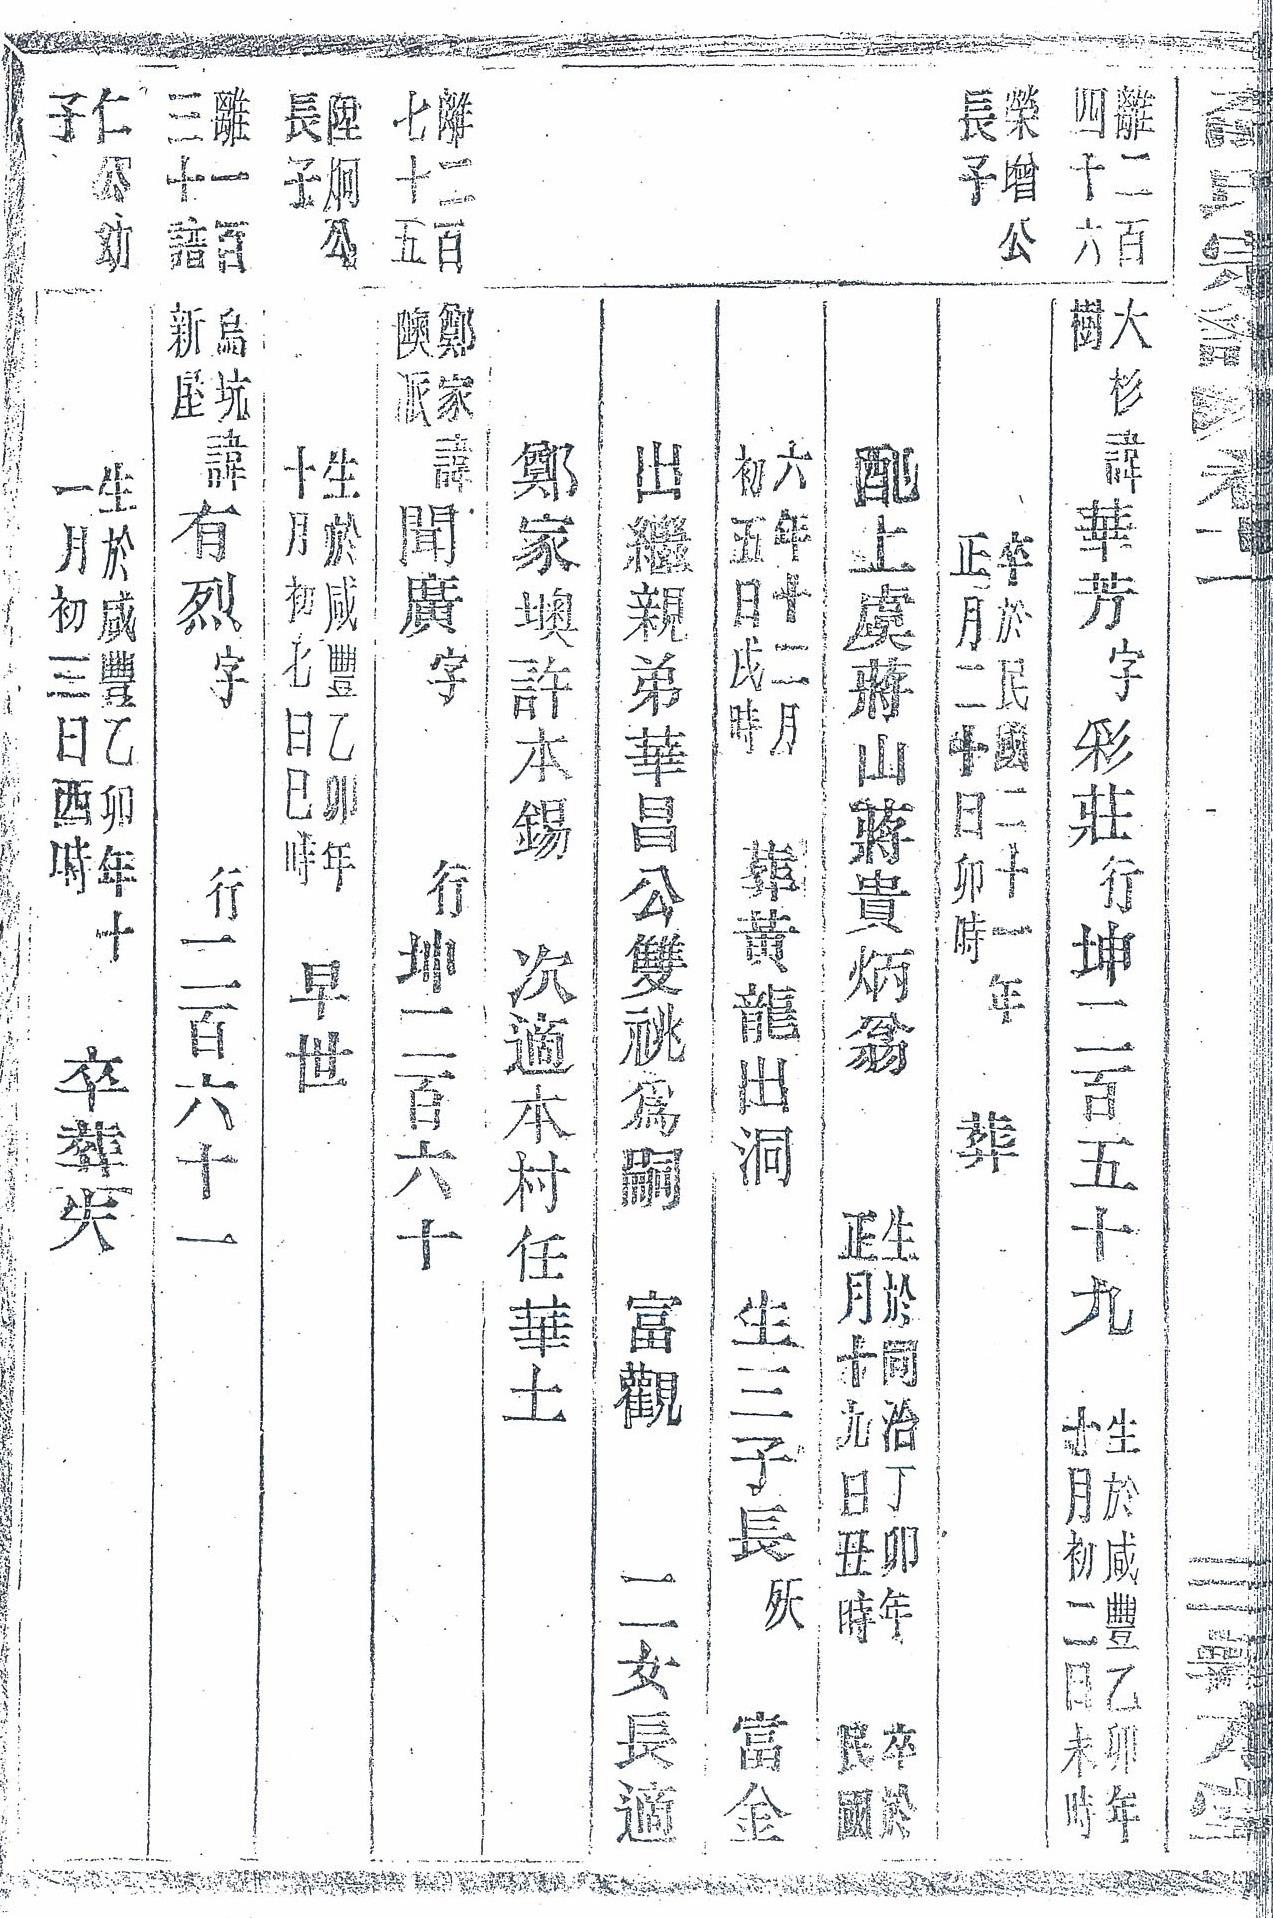 離二百
四十六
榮增公
長子
大杉
樹
諱華芳字彩莊行坤二百五十九
生於咸豐乙卯年
十月初二日未時
卒於民國二十一年
正月二十日卯時
葬
配上虞蔣山蔣貴炳翁
生於同治丁卯年
正月十九日丑時
卒於
民國
六年十二月
初五日戌時
葬黃龍出洞 生三子長殀 富金
出繼親弟華昌公雙祧為嗣 富觀 二女長適
鄭家墺許本錫 次適本村任華土
離二百
七十五
陞炯公
長子
鄭家
墺派
諱聞廣字 行坤二百六十
生於咸豐乙卯年
十月初七日巳時
早世
離一百
三十諳
仁公幼
子
烏坑
新屋
諱有烈字 行二百六十一
生於咸豐乙卯年十
一月初三日酉時
卒葬失